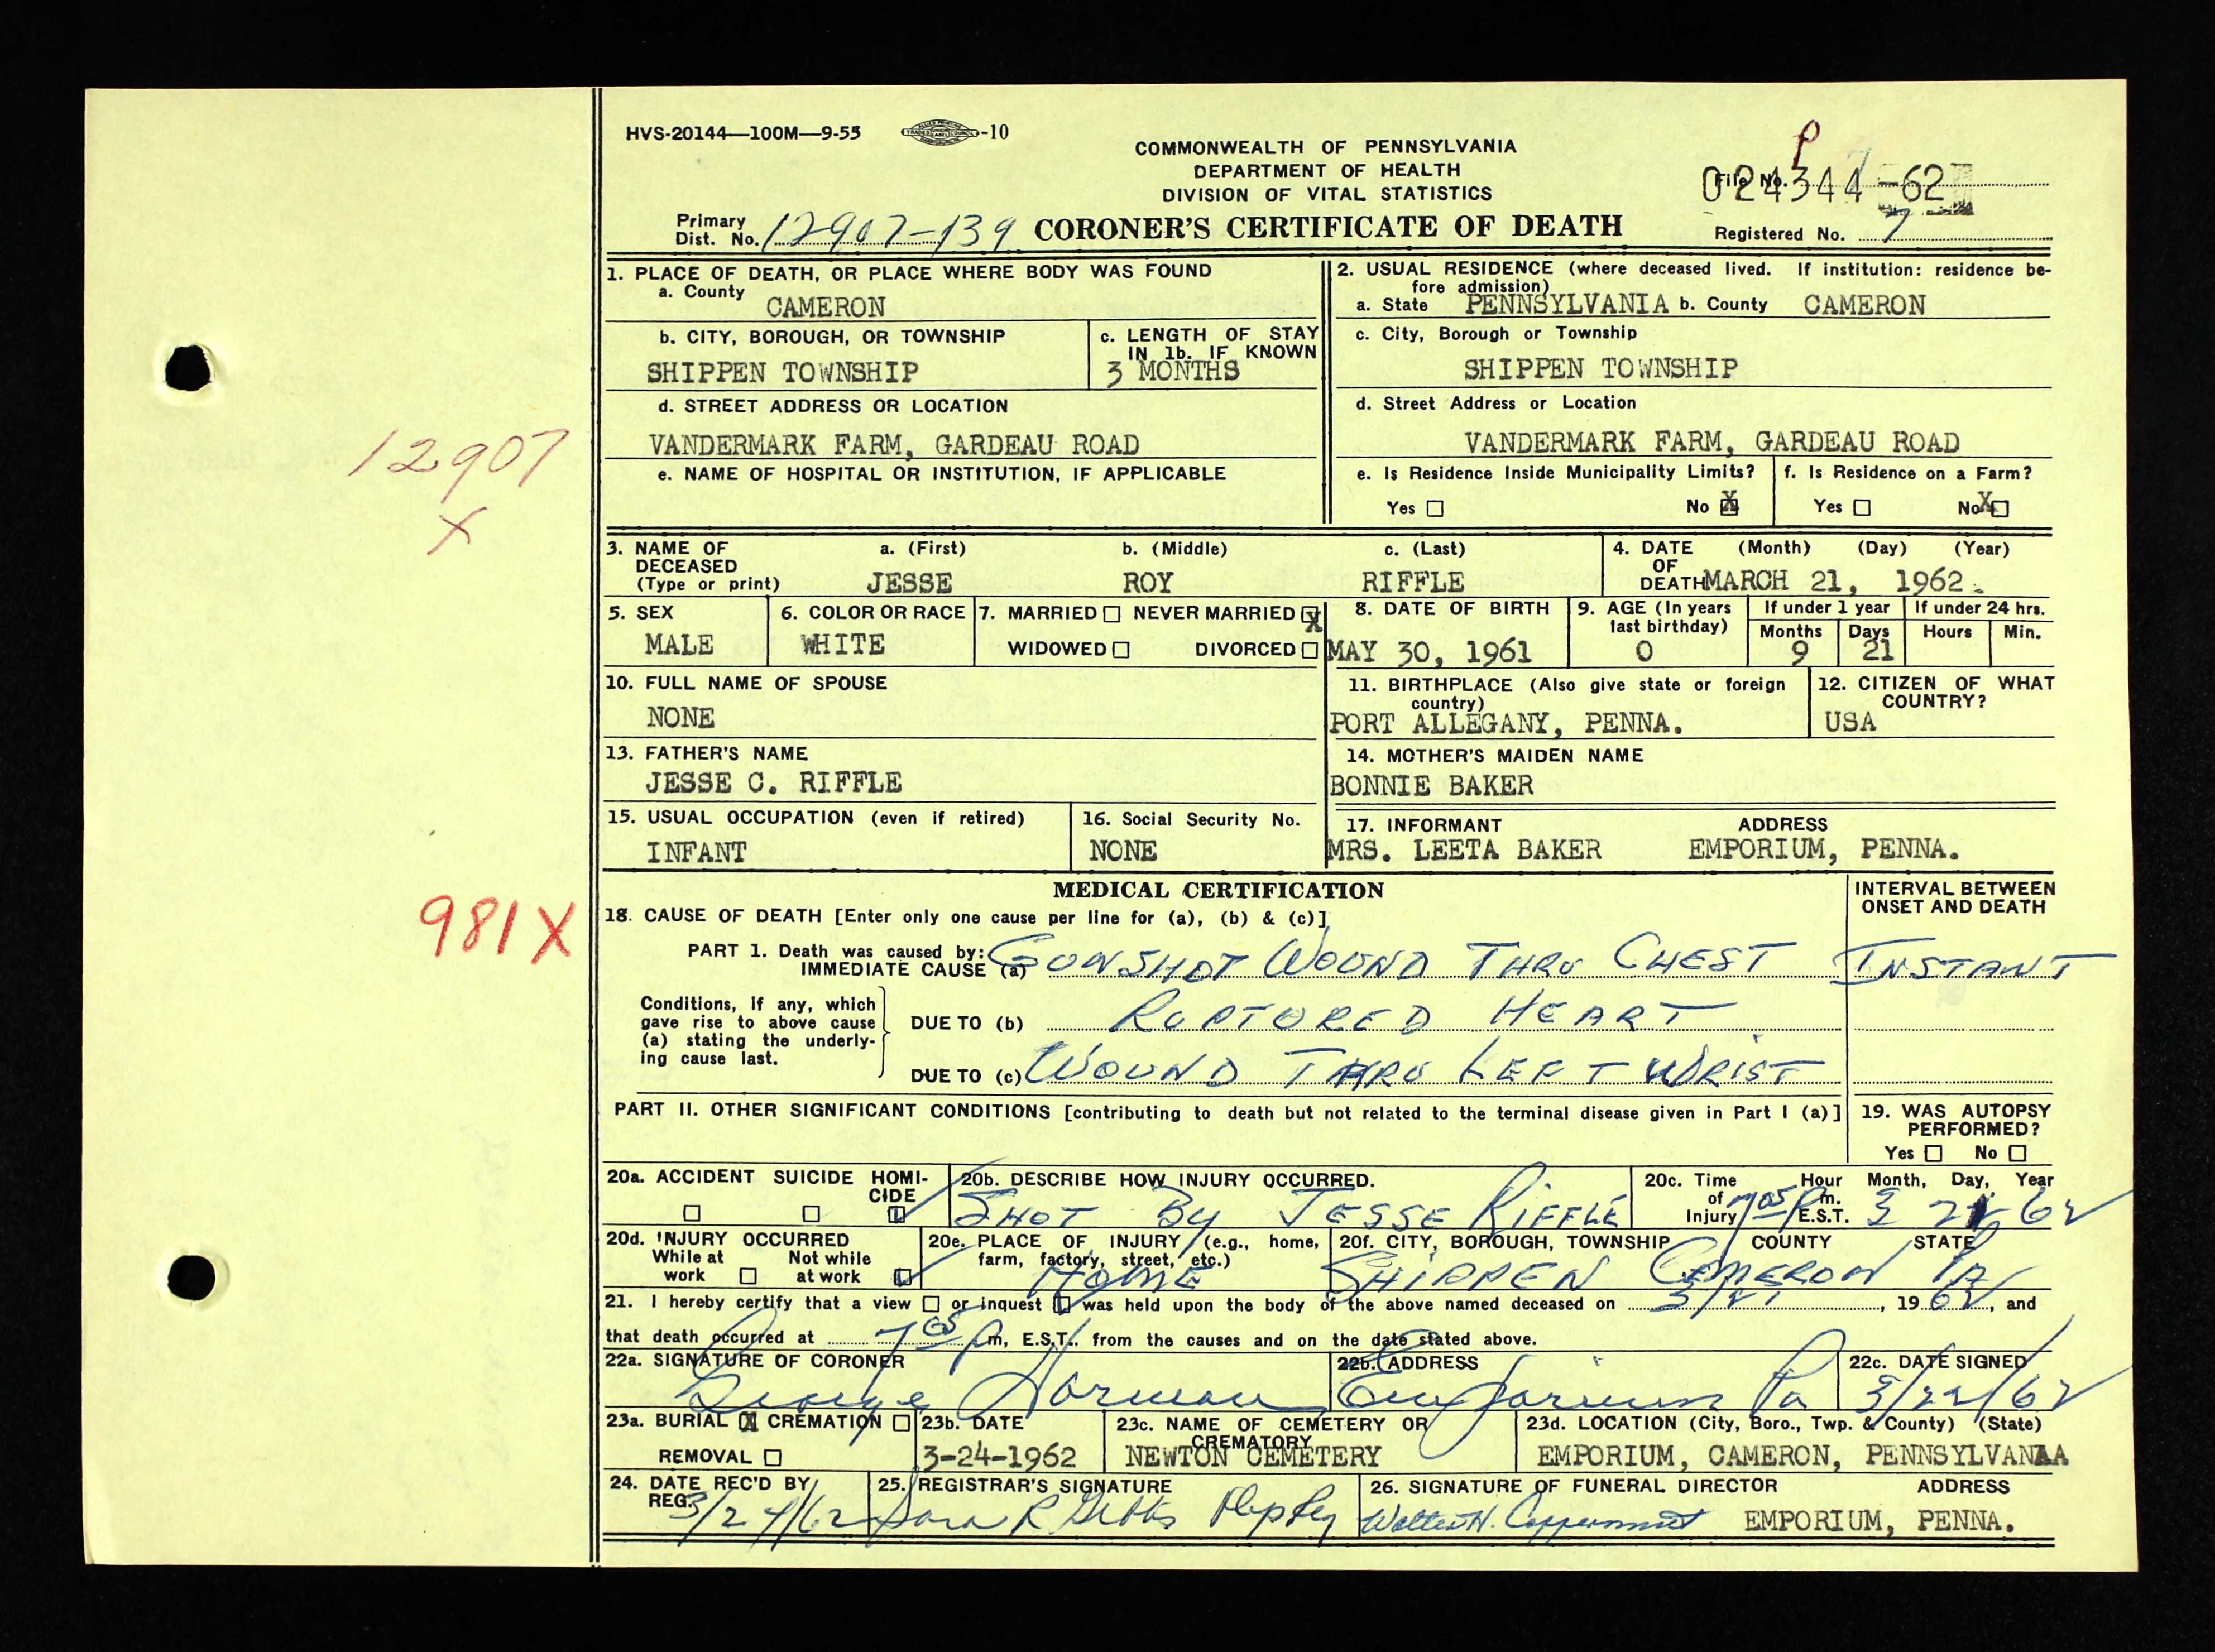 HVS-20144—100M—9-55 -10
COMMONWEALTH OF PENNSYLVANIA
DEPARTMENT OF HEALTH
DIVISION OF VITAL STATISTICS
File No. 024344-62
Primary Dist. No. 12907-139
CORONER'S CERTIFICATE OF DEATH
Registered No. 7
1. PLACE OF DEATH, OR PLACE WHERE BODY WAS FOUND
a. County CAMERON
b. CITY, BOROUGH, OR TOWNSHIP
SHIPPEN TOWNSHIP
c. LENGTH OF STAY IN 1b. IF KNOWN
3 MONTHS
d. STREET ADDRESS OR LOCATION
VANDERMARK FARM, GARDEAU ROAD
e. NAME OF HOSPITAL OR INSTITUTION, IF APPLICABLE
2. USUAL RESIDENCE (where deceased lived. If institution: residence be-
fore admission)
a. State PENNSYLVANIA b. County CAMERON
c. City, Borough or Township
SHIPPEN TOWNSHIP
d. Street Address or Location
VANDERMARK FARM, GARDEAU ROAD
e. Is Residence Inside Municipality Limits?
Yes No X
f. Is Residence on a Farm?
Yes No X
12907
X
3. NAME OF DECEASED (Type or print)
a. (First) b. (Middle) c. (Last)
JESSE ROY RIFFLE
4. DATE OF DEATH (Month) (Day) (Year)
MARCH 21, 1962.
5. SEX
MALE
6. COLOR OR RACE
WHITE
7. MARRIED NEVER MARRIED X
WIDOWED DIVORCED
8. DATE OF BIRTH
MAY 30, 1961
9. AGE (In years last birthday)
0
If under 1 year
Months Days
9 21
If under 24 hrs.
Hours Min.
10. FULL NAME OF SPOUSE
NONE
11. BIRTHPLACE (Also give state or foreign country)
PORT ALLEGANY, PENNA.
12. CITIZEN OF WHAT COUNTRY?
USA
13. FATHER'S NAME
JESSE C. RIFFLE
14. MOTHER'S MAIDEN NAME
BONNIE BAKER
15. USUAL OCCUPATION (even if retired)
INFANT
16. Social Security No.
NONE
17. INFORMANT ADDRESS
MRS. LEETA BAKER EMPORIUM, PENNA.
981X
MEDICAL CERTIFICATION
INTERVAL BETWEEN ONSET AND DEATH
18. CAUSE OF DEATH [Enter only one cause per line for (a), (b) & (c)]
PART I. Death was caused by:
IMMEDIATE CAUSE (a) GUNSHOT WOUND THRU CHEST INSTANT
Conditions, if any, which
gave rise to above cause
(a) stating the underly-
ing cause last.
DUE TO (b) RUPTURED HEART
DUE TO (c) WOUND THRU LEFT WRIST
PART II. OTHER SIGNIFICANT CONDITIONS [contributing to death but not related to the terminal disease given in Part I (a)]
19. WAS AUTOPSY PERFORMED?
Yes No
20a. ACCIDENT SUICIDE HOMI-
CIDE
20b. DESCRIBE HOW INJURY OCCURRED.
SHOT BY JESSE RIFFLE
20c. Time of Injury Hour Month, Day, Year
7 05 P m. E.S.T. 3 21 62
20d. INJURY OCCURRED
While at work Not while at work
20e. PLACE OF INJURY (e.g., home, farm, factory, street, etc.)
HOME
20f. CITY, BOROUGH, TOWNSHIP COUNTY STATE
SHIPPEN CAMERON PA
21. I hereby certify that a view or inquest was held upon the body of the above named deceased on 3/21, 1962, and
that death occurred at 7 05 P m, E.S.T. from the causes and on the date stated above.
22a. SIGNATURE OF CORONER
George Horman
22b. ADDRESS
Emporium Pa
22c. DATE SIGNED
3/22/62
23a. BURIAL X CREMATION
REMOVAL
23b. DATE
3-24-1962
23c. NAME OF CEMETERY OR CREMATORY
NEWTON CEMETERY
23d. LOCATION (City, Boro., Twp. & County) (State)
EMPORIUM, CAMERON, PENNSYLVANIA
24. DATE REC'D BY REG.
3/24/62
25. REGISTRAR'S SIGNATURE
Sara R Gibbs
26. SIGNATURE OF FUNERAL DIRECTOR ADDRESS
Walter H. EMPORIUM, PENNA.